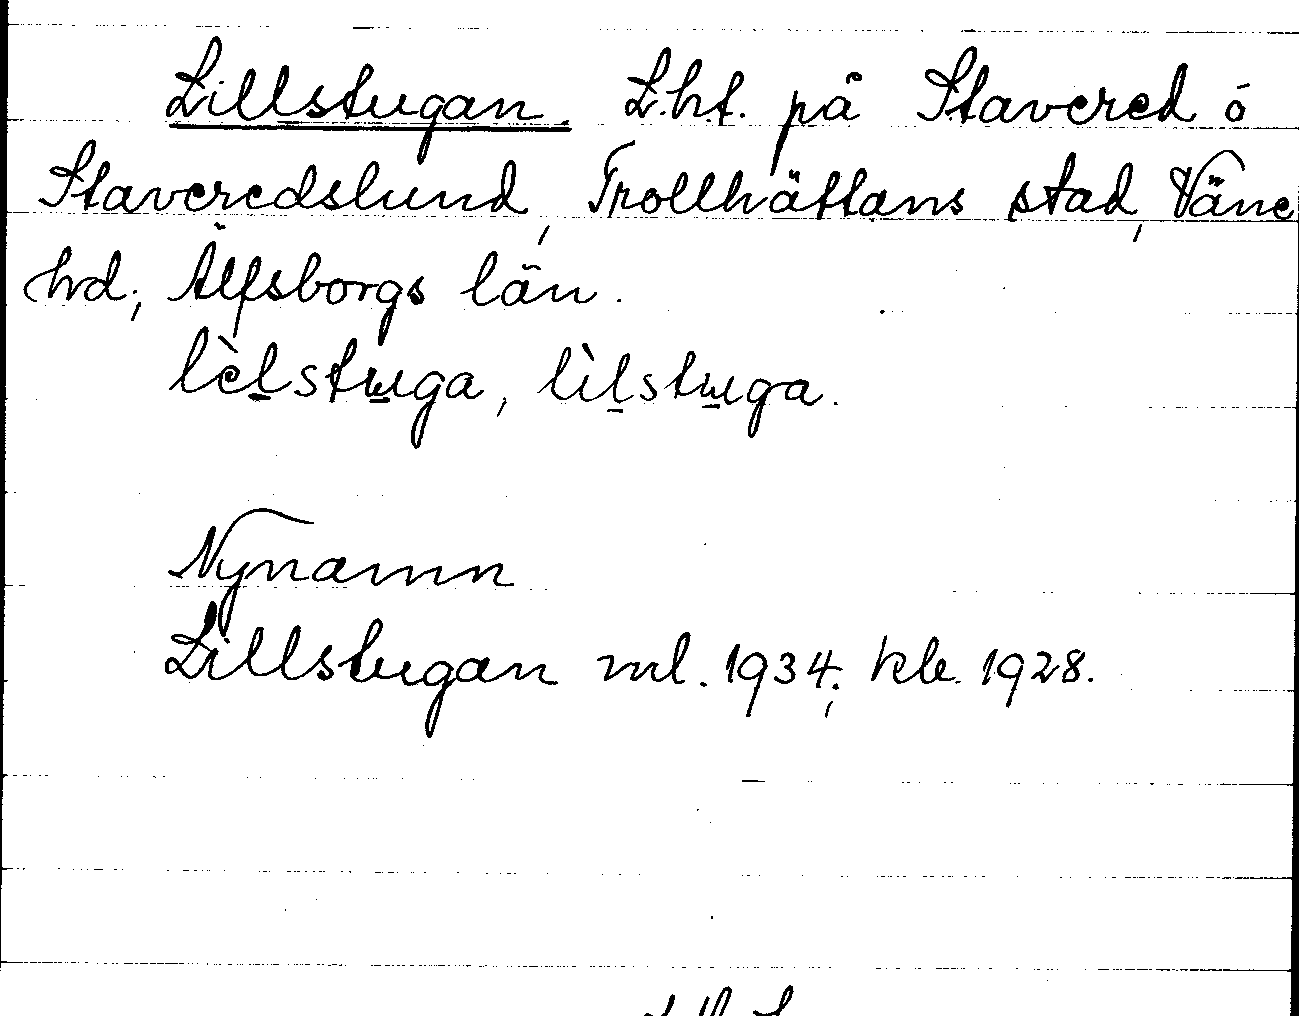 Lillstugan. L.ht. på Stavered ó
Staveredslund, Trollhättans stad, Väne
hd; Älfsborgs län.
lèl̠stɯ̠ga, lìl̠stɯ̠ga.
Nynamn
Lillstugan ml. 1934; kle. 1928.